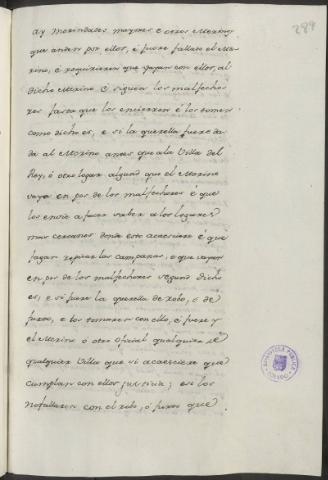 289
ay Merindades mayores e otros Merinos
que anden por ellos, é fuere fallado el Me-
rino, é requirieren que vayan con ellos, al
dicho Merino é sigan los malfecho-
res fasta que los encierren é los tomen
como dicho es, e si la querella fuere da-
da al Merino antes que a la Villa del
Rey, ó otro logar alguno que el Merino
vaya en pos de los malfechores é que
los envie a facer saber a los logares
mas cercanos donde esto acaesciere é que
fagan repicar las campanas, e que vayan
en pos de los malfechores segund dicho
es; e si fuere la querella de robo, o de
furto, e los tomaren con ello, é fuere y
el Merino ó otro Oficial qualquiera de
qualquier Villa que si acaesciere que
cumplan con ellos justicia; e si los
no fallaren con el robo, ó furto que